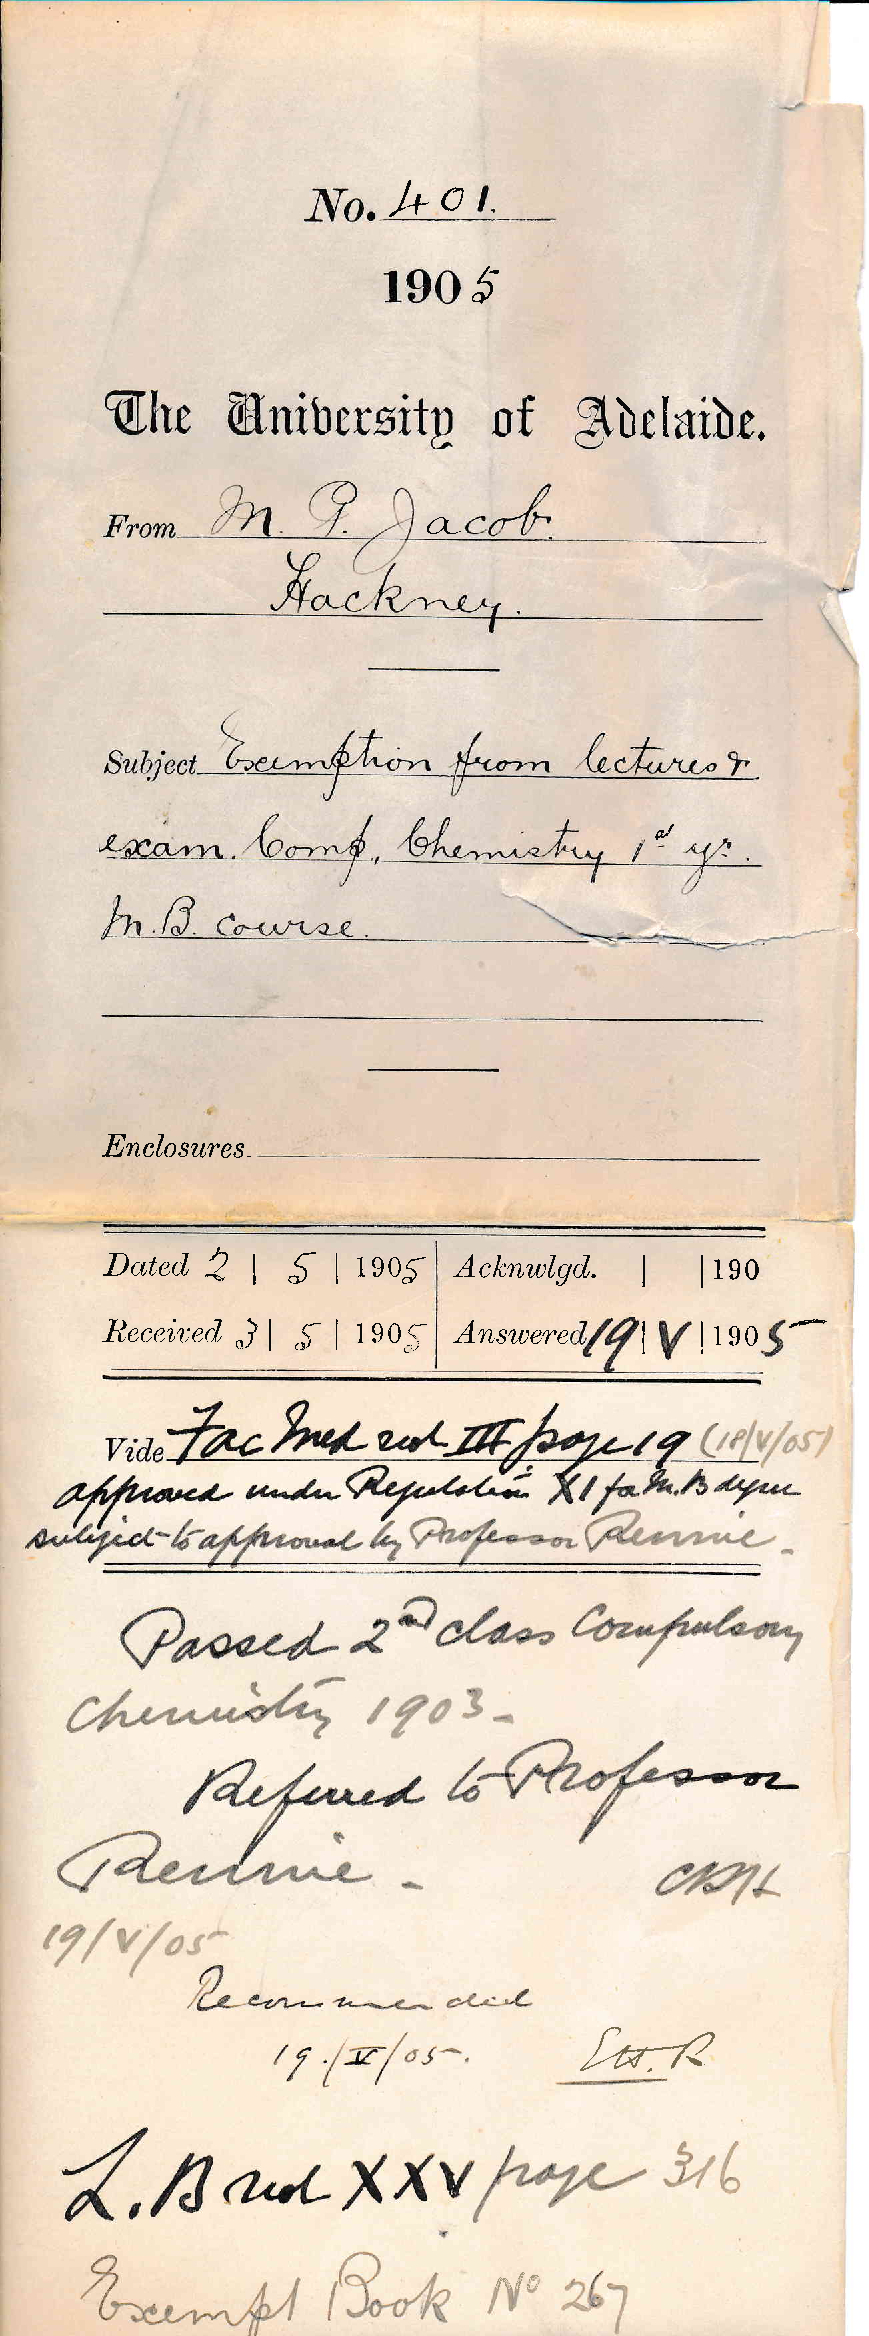 No. 401.
1905
The University of Adelaide.
From M. P. Jacob.
Hackney.
Subject Exemption from lectures &
exam. Comp. Chemistry 1st yr.
M.B. course.
Enclosures.
Dated 2 | 5 | 1905 Acknwlgd. | | 190
Received 3 | 5 | 1905 Answered 19 | V | 1905
Vide Fac Med vol III page 19 (18/V/05)
approved under Regulation XI for M.B degree
subject to approval by Professor Rennie -
Passed 2nd class Compulsory
Chemistry 1903 -
Referred to Professor
Rennie - CRH
19/V/05
Recommended
19./V/05. EH.R
L.B vol XXV page 316
Exempt Book No 267